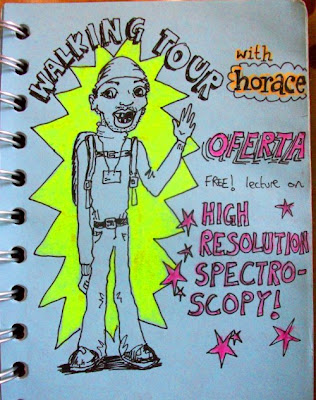 WALKING TOUR
with
horace
OFERTA
FREE! lecture on
HIGH
RESOLUTION
SPECTRO-
SCOPY!